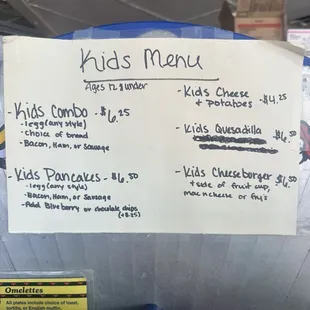 Kids Menu
Ages 12 & under
- Kids Combo - $6.25
- 1 egg (any style)
- choice of bread
- Bacon, Ham, or Sausage
- Kids Pancakes - $6.50
- 1 egg (any style)
- Bacon, Ham, or Sausage
- Add Blueberry or chocolate chips
(+0.25)
- Kids Cheese
+ potatoes - $4.25
- Kids Quesadilla
$6.50
- Kids Cheeseborger $6.50
+ side of fruit cup,
mac n cheese or fry's
Omelettes
All plates include choice of toast,
tortilla, or English muffin.